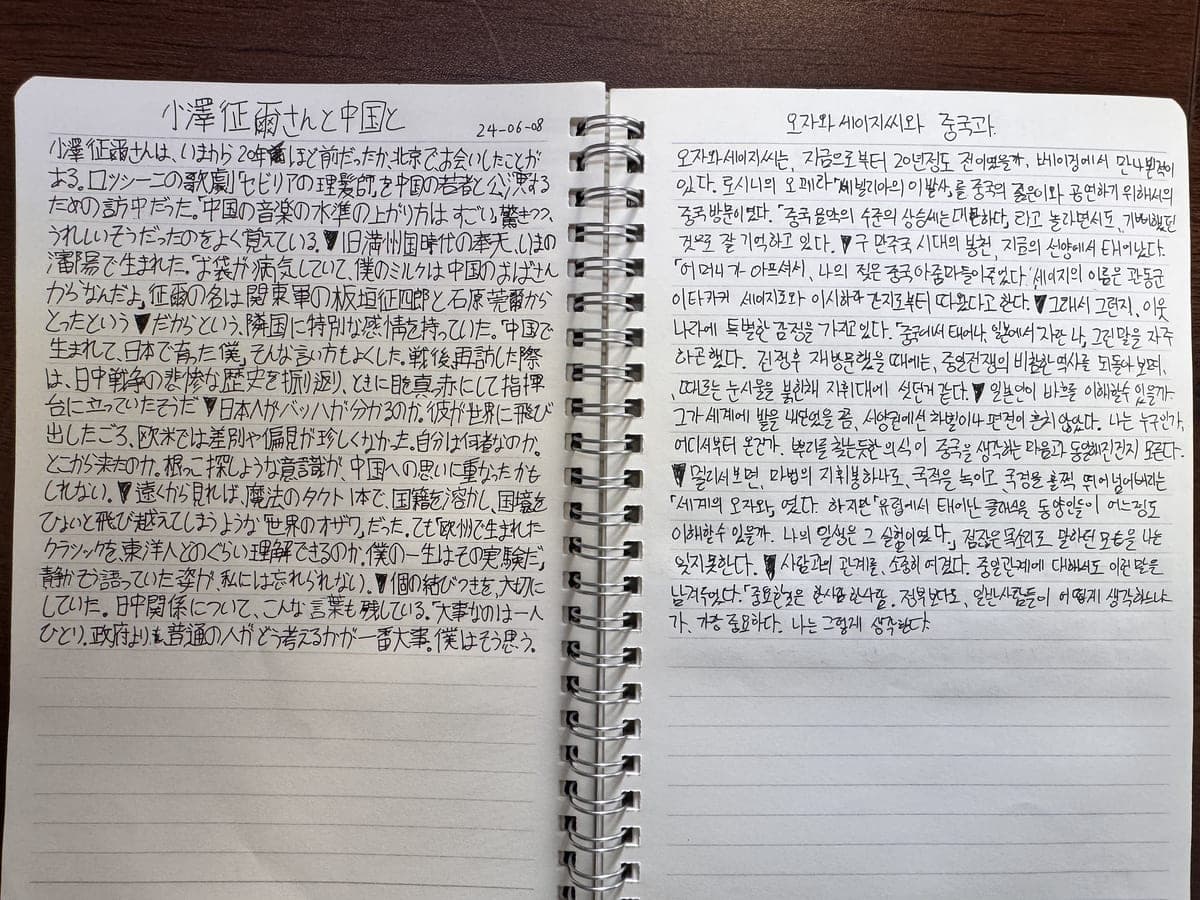 小澤征爾さんと中国と
24-06-08
小澤征爾さんは、いまから20年ほど前だったか、北京でお会いしたことが
ある。ロッシーニの歌劇「セビリアの理髪師」を中国の若者と公演する
ための訪中だった。「中国の音楽の水準の上がり方は、すごい」。驚きつつ、
うれしいそうだったのをよく覚えている。▼旧満州国時代の奉天、いまの
瀋陽で生まれた。「お袋が病気していて、僕のミルクは中国のおばさん
からなんだよ」征爾の名は関東軍の板垣征四郎と石原莞爾から
とったという▼だからという、隣国に特別な感情を持っていた。「中国で
生まれて、日本で育った僕」そんな言い方もよくした。戦後、再訪した際
は、日中戦争の悲惨な歴史を振り返り、ときに目を真っ赤にして指揮
台に立っていたそうだ▼日本人がバッハが分かるのか。彼が世界に飛び
出したころ、欧米では差別や偏見が珍しくなかった。自分は何者なのか。
どこから来たのか。根っこ探しような意識が、中国への思いに重なったかも
しれない。▼遠くから見れば、魔法のタクト1本で、国籍を溶かし、国境を
ひょいと飛び越えてしまうような「世界のオザワ」だった。でも「欧州で生まれた
クラシックを、東洋人どのぐらい理解できるのか。僕の一生はその実験だ」
静かそう語っていた姿が、私には忘れられない。▼個の結びつきを、大切に
していた。日中関係について、こんな言葉も残している。「大事なのは一人
ひとり。政府よりも、普通の人がどう考えるかが一番大事。僕はそう思う。
오자와 세이지씨와 중국과
오자와세이지씨는, 지금으로부터 20년정도 전이였을까, 베이징에서 만나본적이
있다. 로시니의 오페라「쎄빌리아의 이발사」를 중국의 젊은이와 공연하기 위해서의
중국방문이였다.「중국음악의 수준의 상승세는 대단하다」라고 놀라면서도, 기뻐했던
것으로 잘 기억하고 있다. ▼구 만주국 시대의 봉천, 지금의 선양에서 태어났다.
「어머니가 아프셔서, 나의 젖은 중국아줌마들이주었다」세이지의 이름은 관동군
이타카키 세이지로와 이시하라 간지로부터 따왔다고 한다. ▼그래서 그런지, 이웃
나라에 특별한 감정을 가지고있다.「중국에서 태어나, 일본에서 자란 나」그런말을 자주
하곤했다. 전후 재방문했을 때에는, 중일전쟁의 비참한 역사를 되돌아 보며,
때로는 눈시울을 붉힌채 지휘대에 섰던거 같다. ▼일본인이 바흐를 이해할수 있을까.
그가 세계에 발을 내딛었을 쯤, 서양권에선 차별이나 편견이 흔치 않았다. 나는 누구인가,
어디서부터 온건가. 뿌리를 찾는듯한 의식이 중국을 생각하는 마음과 동일해진건지 모른다.
▼멀리서보면, 마법의 지휘봉하나로, 국적을 녹이고, 국경을 훌쩍 뛰어넘어버리는
「세계의 오자와」였다. 하지만「유럽에서 태어난 클래식을 동양인들이 어느정도
이해할수 있을까. 나의 일생은 그 실험이였다」점잖은 목소리로 말하던 모습을 나는
잊지못한다. ▼사람과의 관계를, 소중히 여겼다. 중일관계에 대해서도 이런 말을
남겨주었다.「중요한것은 한사람한사람. 정부보다도, 일반사람들이 어떻게 생각하느냐
가, 가장 중요하다. 나는 그렇게 생각한다.